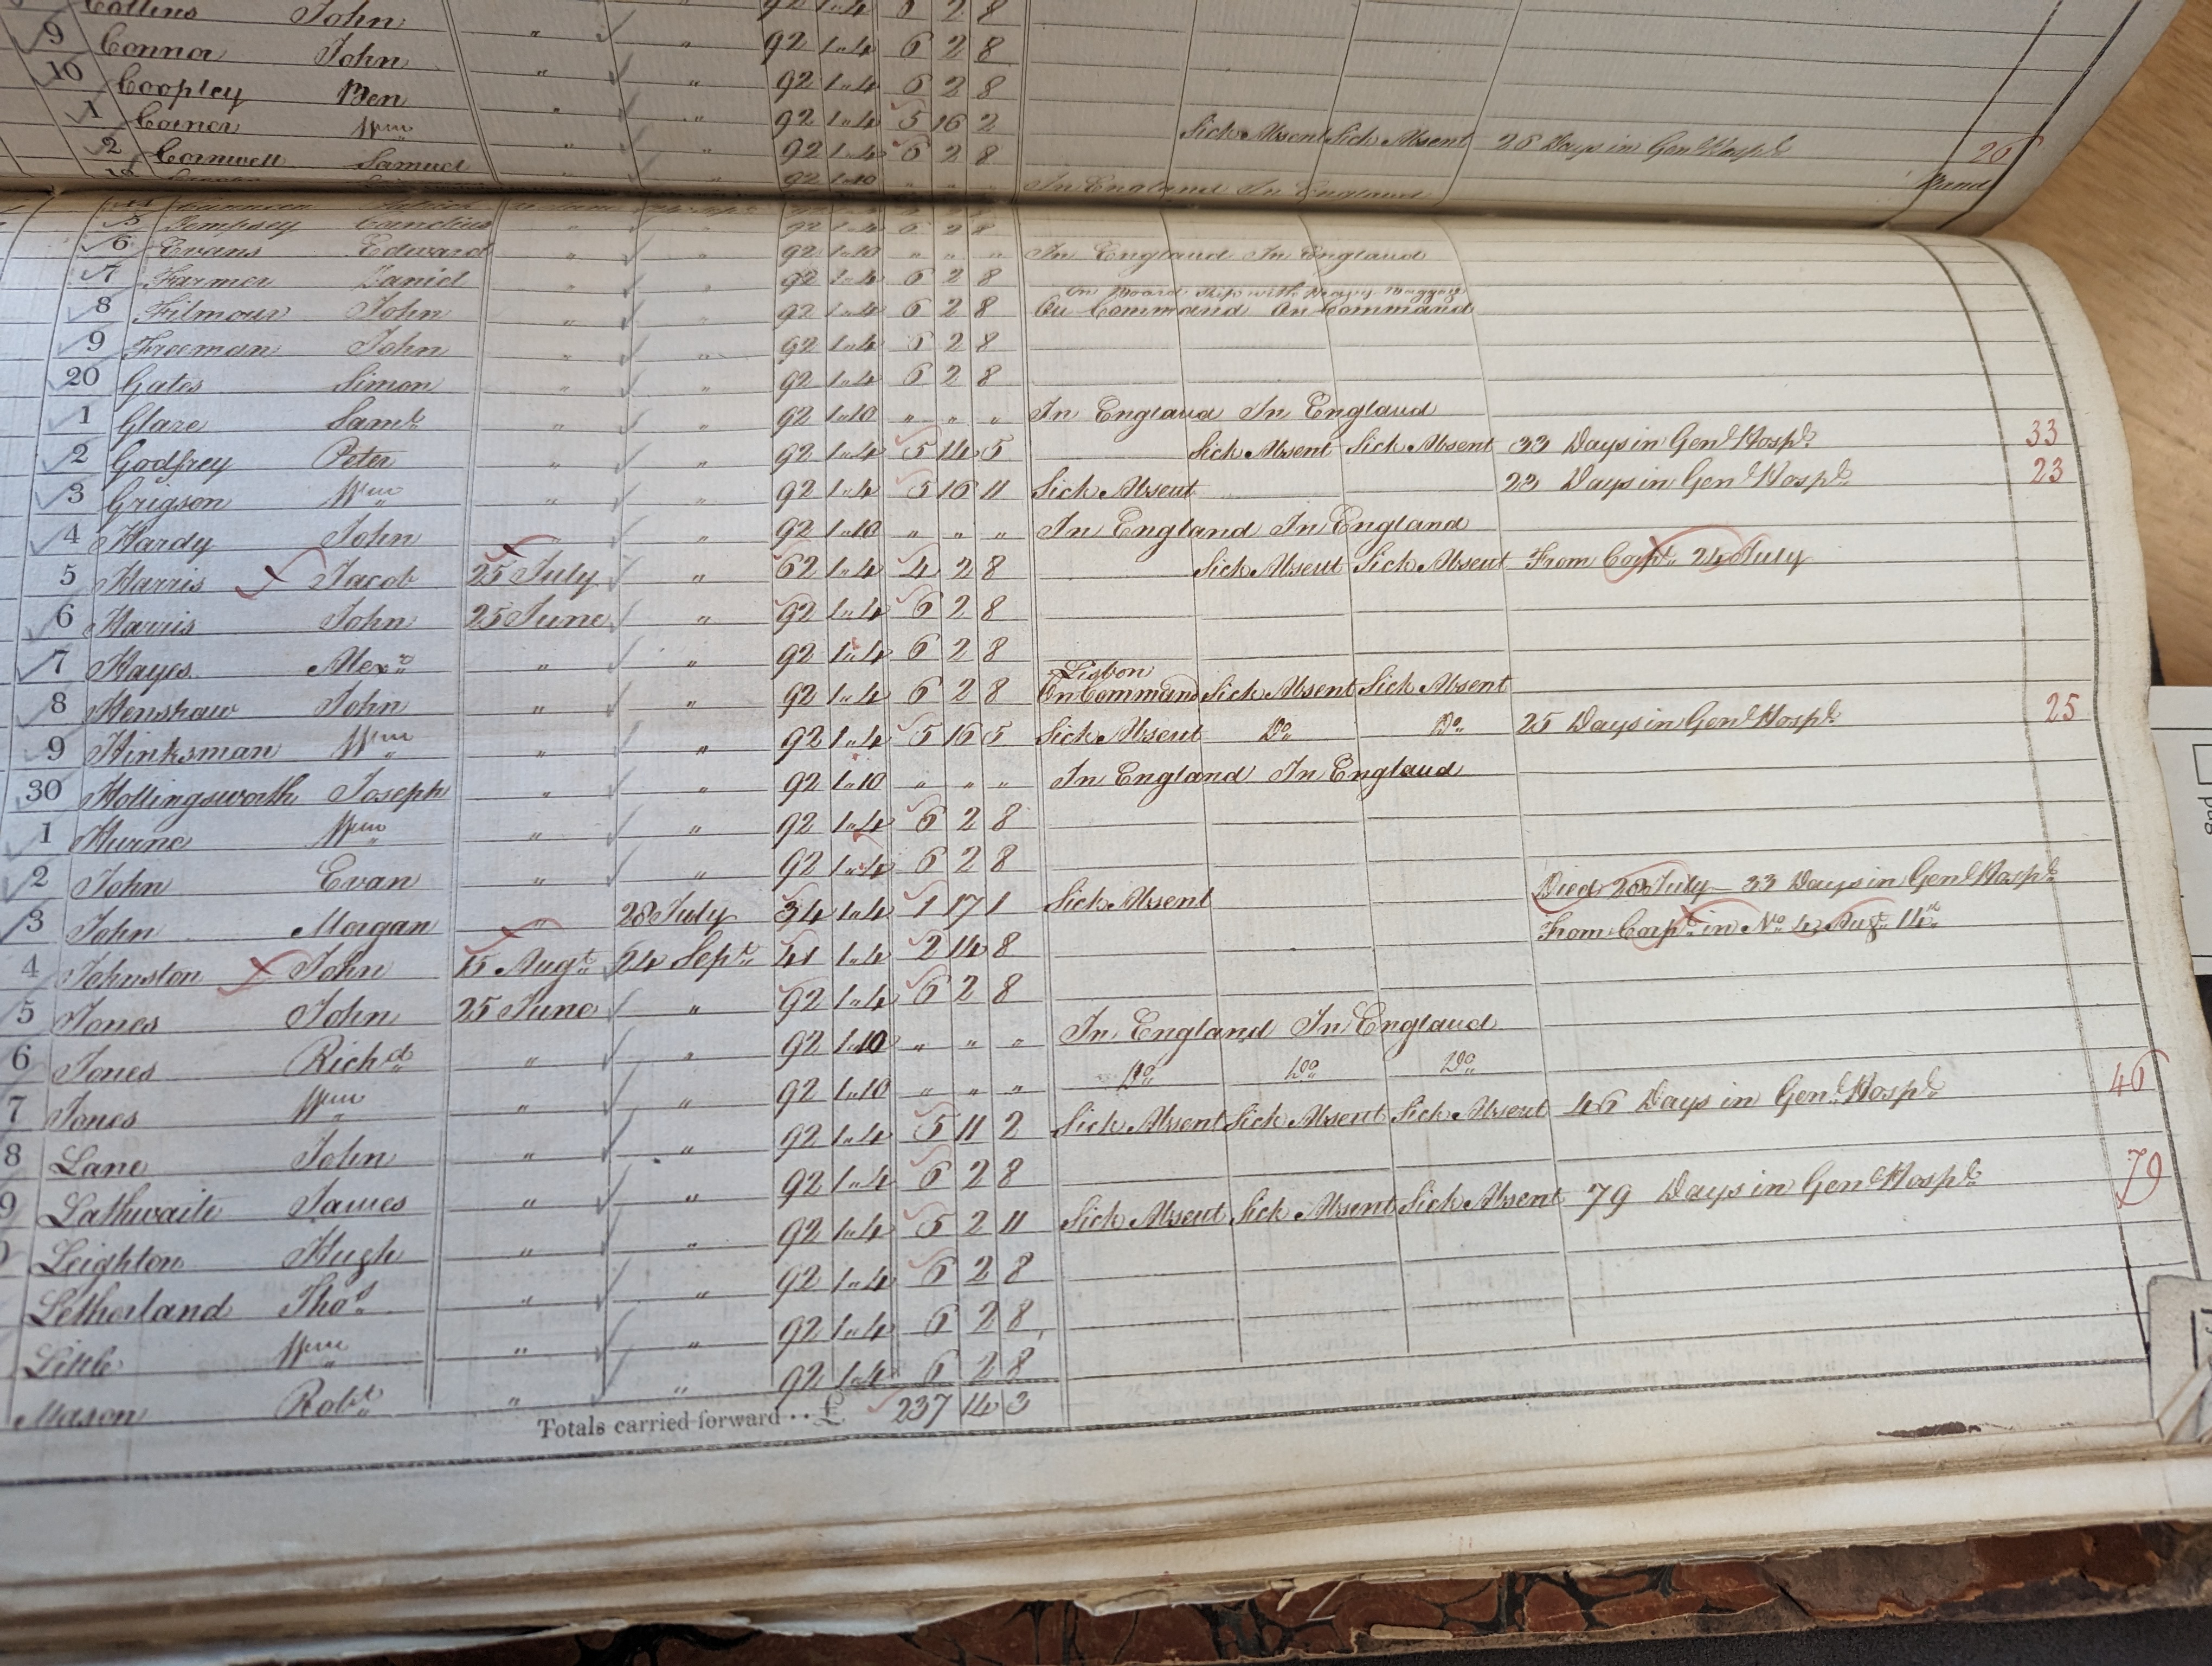 Collins John " " 92 1"4 6 2 8
9 Connor John " " 92 1"4 6 2 8
10 Coopley Ben " " 92 1"4 6 2 8
1 Corner Wm " " 92 1"4 5 16 2 Sick Absent Sick Absent 26 Days in Genl Hospl 26
2 Cornwell Samuel " " 92 1"4 6 2 8
92 1"10 " " " In England In England
5 Dempsey Cornelius " " 92 1"4 6 2 8
6 Evans Edward " " 92 1"10 " " " In England In England
7 Farmer Daniel " " 92 1"4 6 2 8
On Board Ship with Heavy Baggage
8 Filmour John " " 92 1"4 6 2 8 On Command On Command
9 Freeman John " " 92 1"4 6 2 8
20 Gates Simon " " 92 1"4 6 2 8
1 Glaze Saml " " 92 1"10 " " " In England In England
2 Godfrey Peter " " 92 1"4 5 14 5 Sick Absent Sick Absent 33 Days in Genl Hospl 33
3 Grigson Wm " " 92 1"4 5 16 11 Sick Absent 23 Days in Genl Hospl 23
4 Hardy John " " 92 1"10 " " " In England In England
5 Harris Jacob 25 July " 62 1"4 4 2 8 Sick Absent Sick Absent From Corpl 24 July
6 Harris John 25 June " 92 1"4 6 2 8
7 Hayes Alexr " " 92 1"4 6 2 8
Lisbon
8 Henshaw John " " 92 1"4 6 2 8 On Command Sick Absent Sick Absent
9 Hinksman Wm " " 92 1"4 5 16 5 Sick Absent Do Do 25 Days in Genl Hospl 25
30 Hollingsworth Joseph " " 92 1"10 " " " In England In England
1 Hurne Wm " " 92 1"4 6 2 8
2 John Evan " " 92 1"4 6 2 8
3 John Morgan " 28 July 34 1"4 1 17 1 Sick Absent Died 28 July – 33 Days in Genl Hospl
4 Johnston John 15 Augt 24 Sept 41 1"4 2 14 8 From Corpl in No 4 Augt 14
5 Jones John 25 June " 92 1"4 6 2 8
6 Jones Richd " " 92 1"10 " " " In England In England
7 Jones Wm " " 92 1"10 " " " Do Do Do
8 Lane John " " 92 1"4 5 11 2 Sick Absent Sick Absent Sick Absent 46 Days in Genl Hospl 46
9 Lathwaite James " " 92 1"4 6 2 8
Leighton Hugh " " 92 1"4 5 2 11 Sick Absent Sick Absent Sick Absent 79 Days in Genl Hospl 79
Letherland Thos " " 92 1"4 6 2 8
Little Wm " " 92 1"4 6 2 8
Mason Robt " " 92 1"4 6 2 8
Totals carried forward .. £ 237 14 3